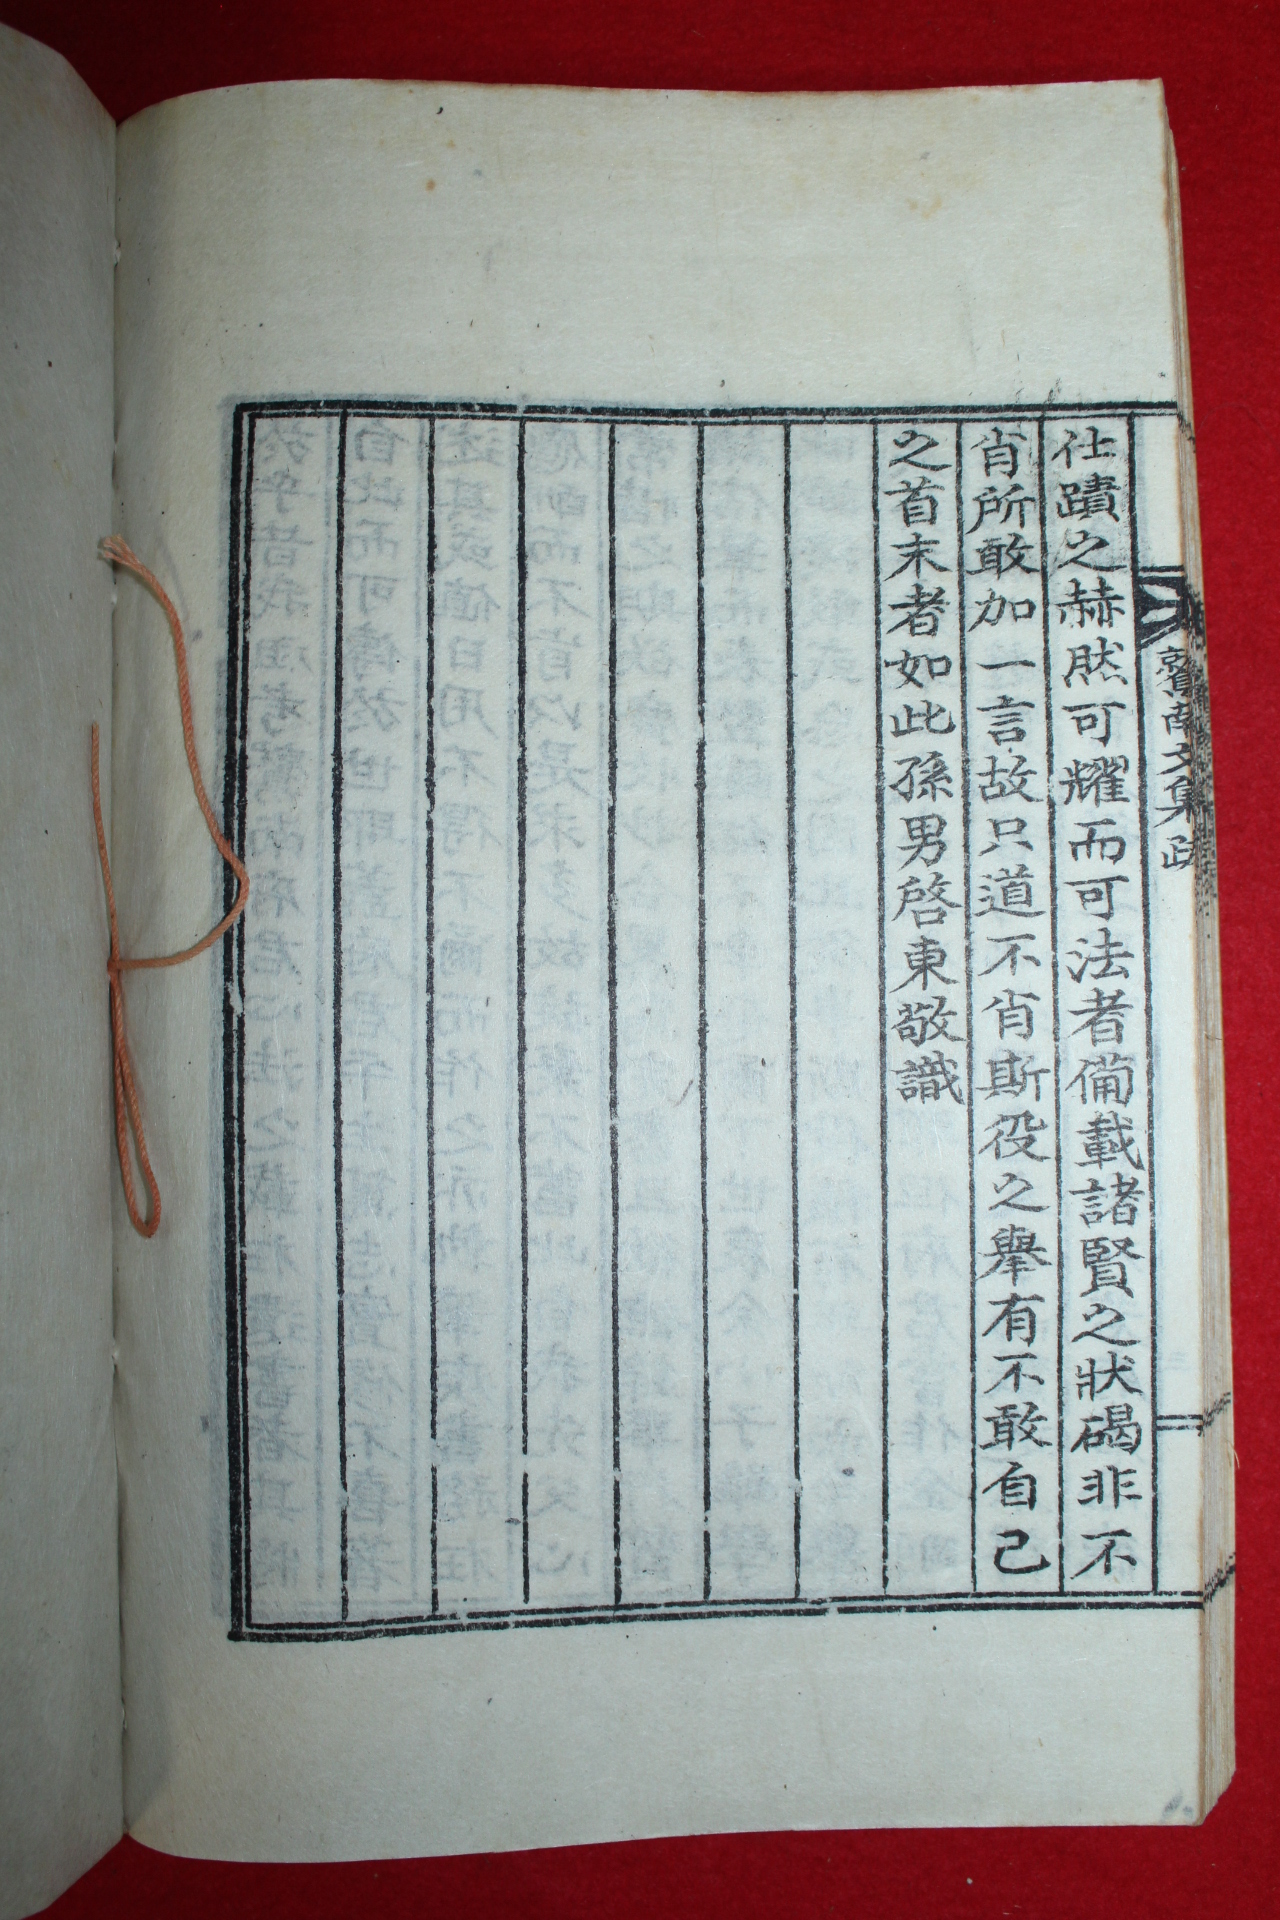 仕蹟之赫然可耀而可法者備載諸賢之狀碣非不
肖所敢加一言故只道不肖斯役之舉有不敢自己
之首末者如此孫男啓東敬識
南文集 跋